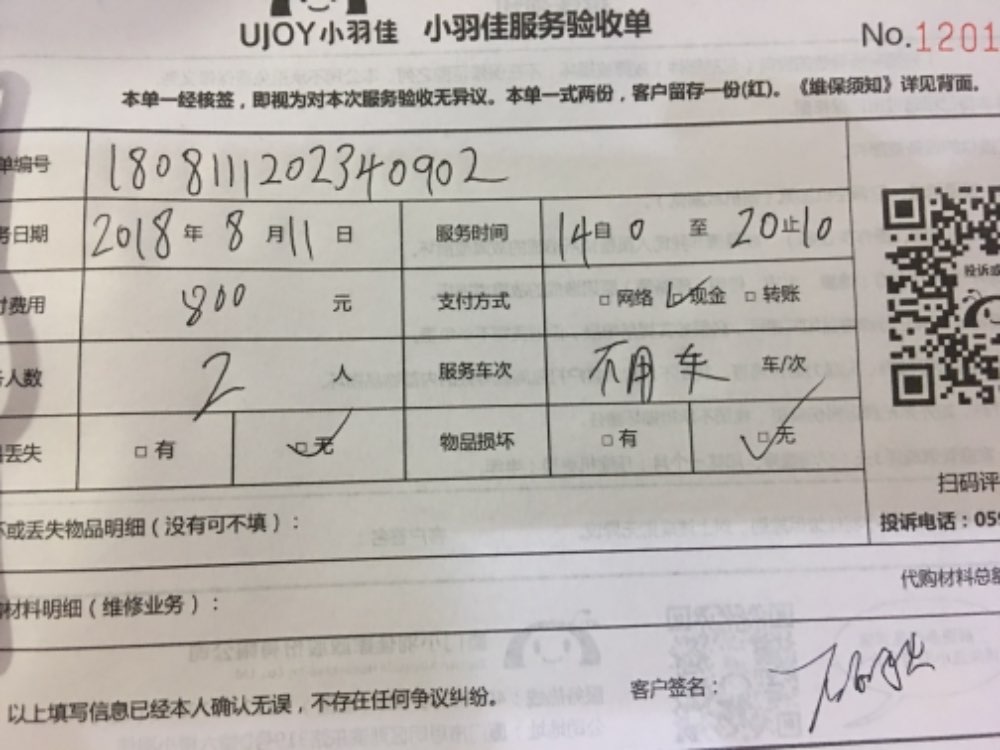 UJOY小羽佳 小羽佳服务验收单 No.1201
本单一经核签，即视为对本次服务验收无异议。本单一式两份，客户留存一份(红)。《维保须知》详见背面。
单编号 1808111202340902
务日期 2018 年 8 月 11 日 服务时间 14 自 0 至 20 止 10
付费用 800 元 支付方式 □ 网络 □ 现金 □ 转账
人数 2 人 服务车次 不用车 车/次
丢失 □ 有 □ 无 物品损坏 □ 有 □ 无
投诉或
扫码评
坏或丢失物品明细（没有可不填）： 投诉电话：059
代购材料总额
材料明细（维修业务）：
以上填写信息已经本人确认无误，不存在任何争议纠纷。 客户签名：